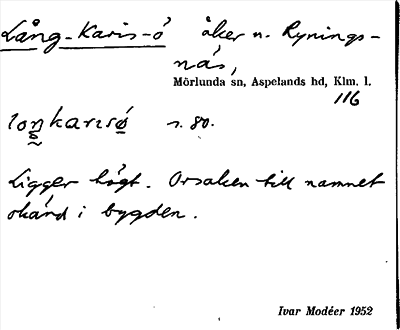 Lång-Karis-ö åker n. Rynings-
näs,
Mörlunda sn, Aspelands hd, Klm. l.
116
loŋkarısø s. 80.
Ligger högt. Orsaken till namnet
okänd i bygden.
Ivar Modéer 1952